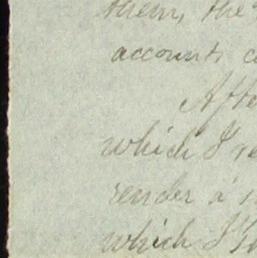 them, the
accounts
Afte
which I re
render a
which I